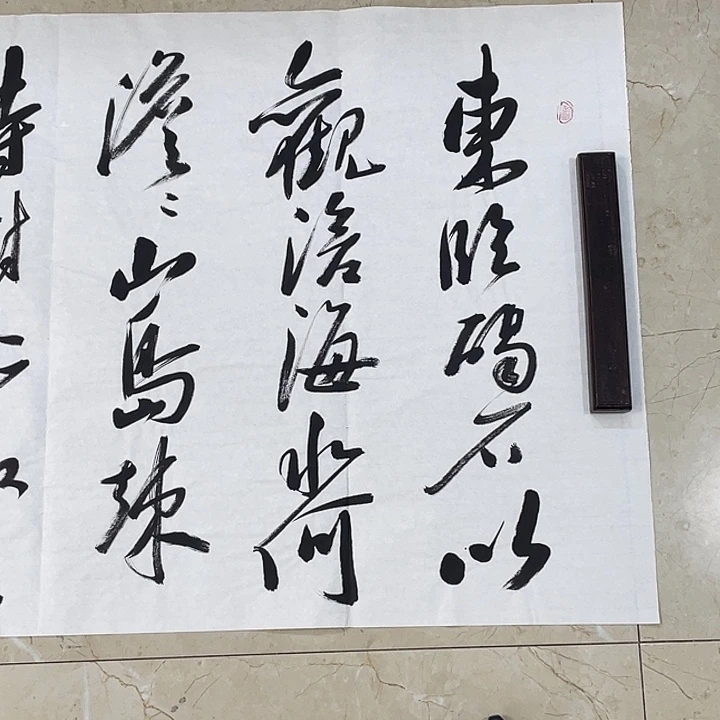 東臨碣石以
觀滄海水何
澹〻山島竦